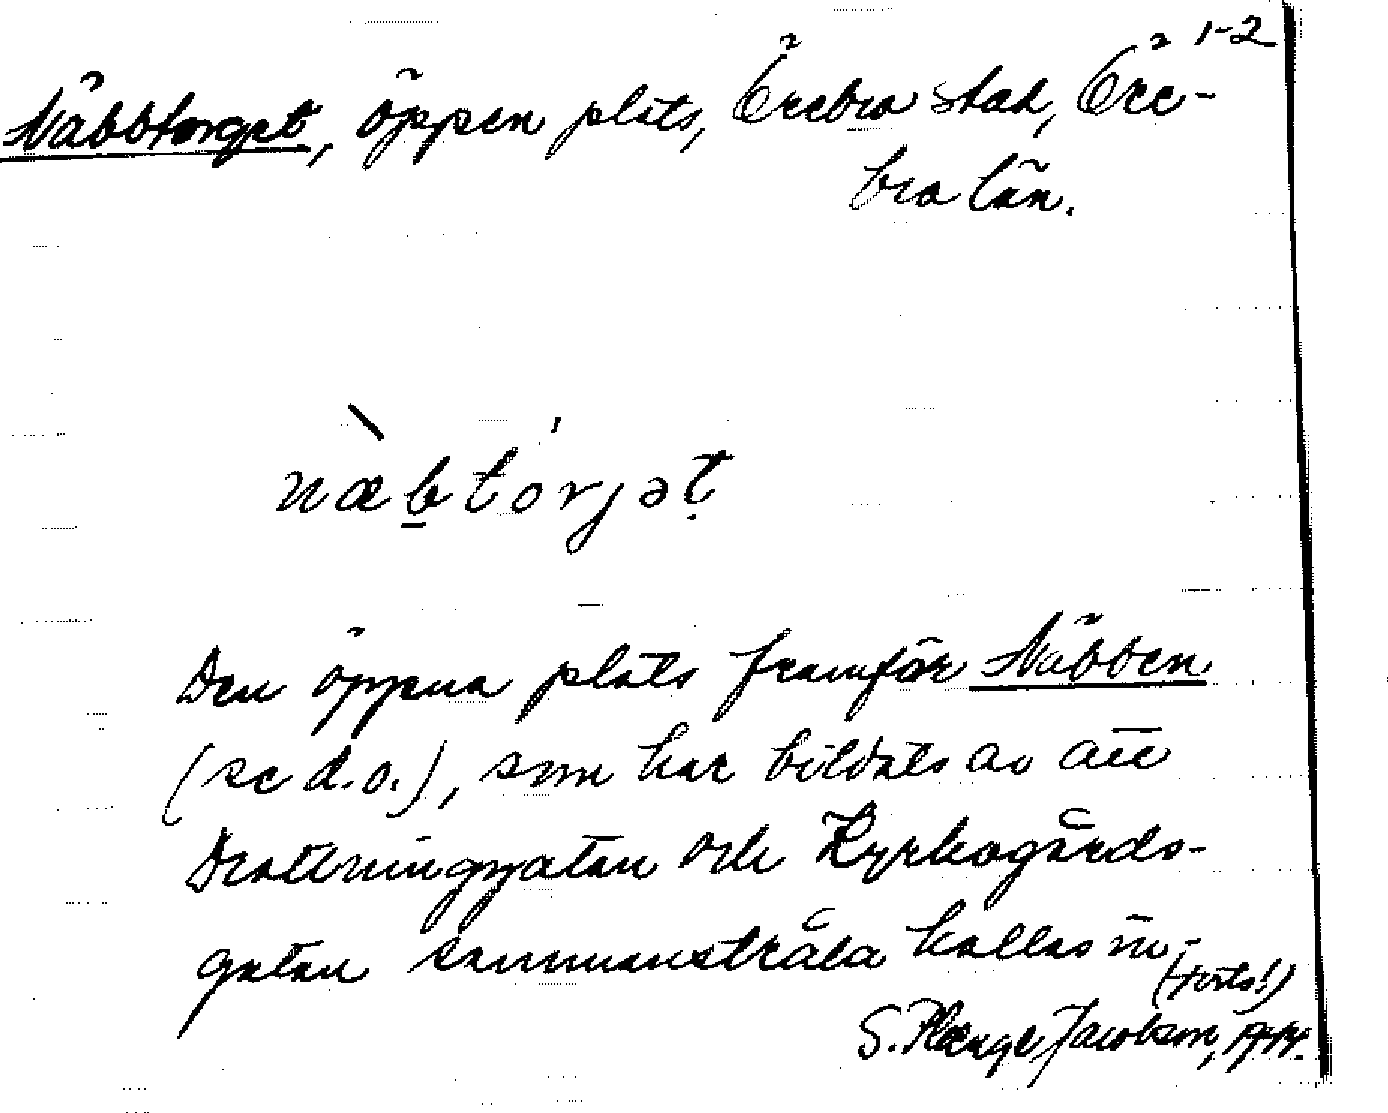 1-2
Näbbtorget, öppen plats, Örebro stad, Öre-
bro län.
næbtórjət
Den öppna plats framför Näbben
(se d.o.), som har bildats av att
Drottninggatan och Kyrkogårds-
gatan sammanstråla kallas in-
(forts!)
S. Plænge Jacobson,